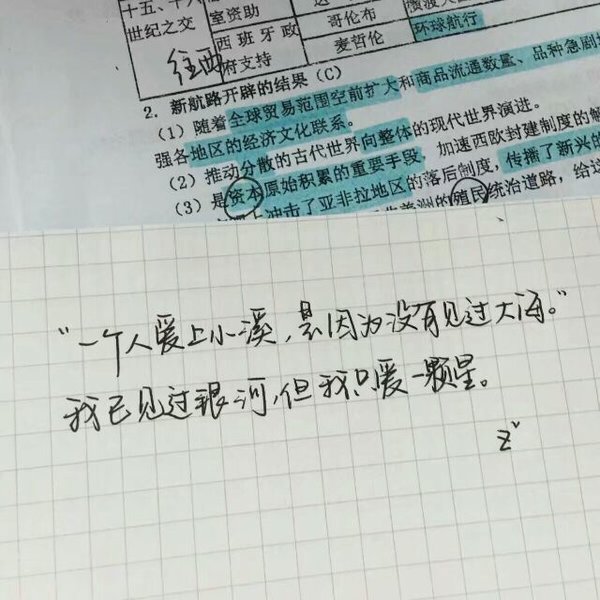 十五、十六
世纪之交
室资助
西班牙政
府支持
哥伦布
麦哲伦
环球航行
往西
2. 新航路开辟的结果（C）
（1）随着全球贸易范围空前扩大和商品流通数量、品种急剧
强各地区的经济文化联系。
（2）推动分散的古代世界向整体的现代世界演进。
（3）是资本原始积累的重要手段，加速西欧封建制度的解
冲击了亚非拉地区的落后制度，传播了新兴的
美洲的殖民统治道路，给这
“一个人爱上小溪，是因为没有见过大海。”
我已见过银河，但我只爱一颗星。
z